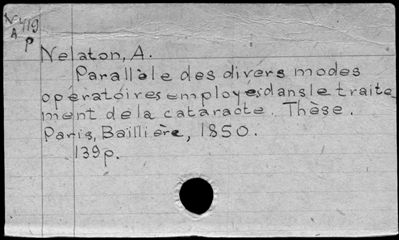 N419
A
p
Nelaton, A.
Parallèle des divers modes
opératoires employés dans le traite
ment de la cataracte. Thèse.
Paris, Baillière, 1850.
139p.